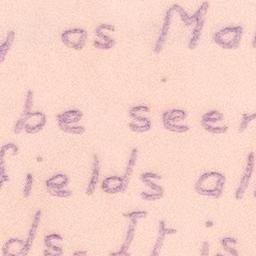 as Ma
be seen
fields al
ds. It is